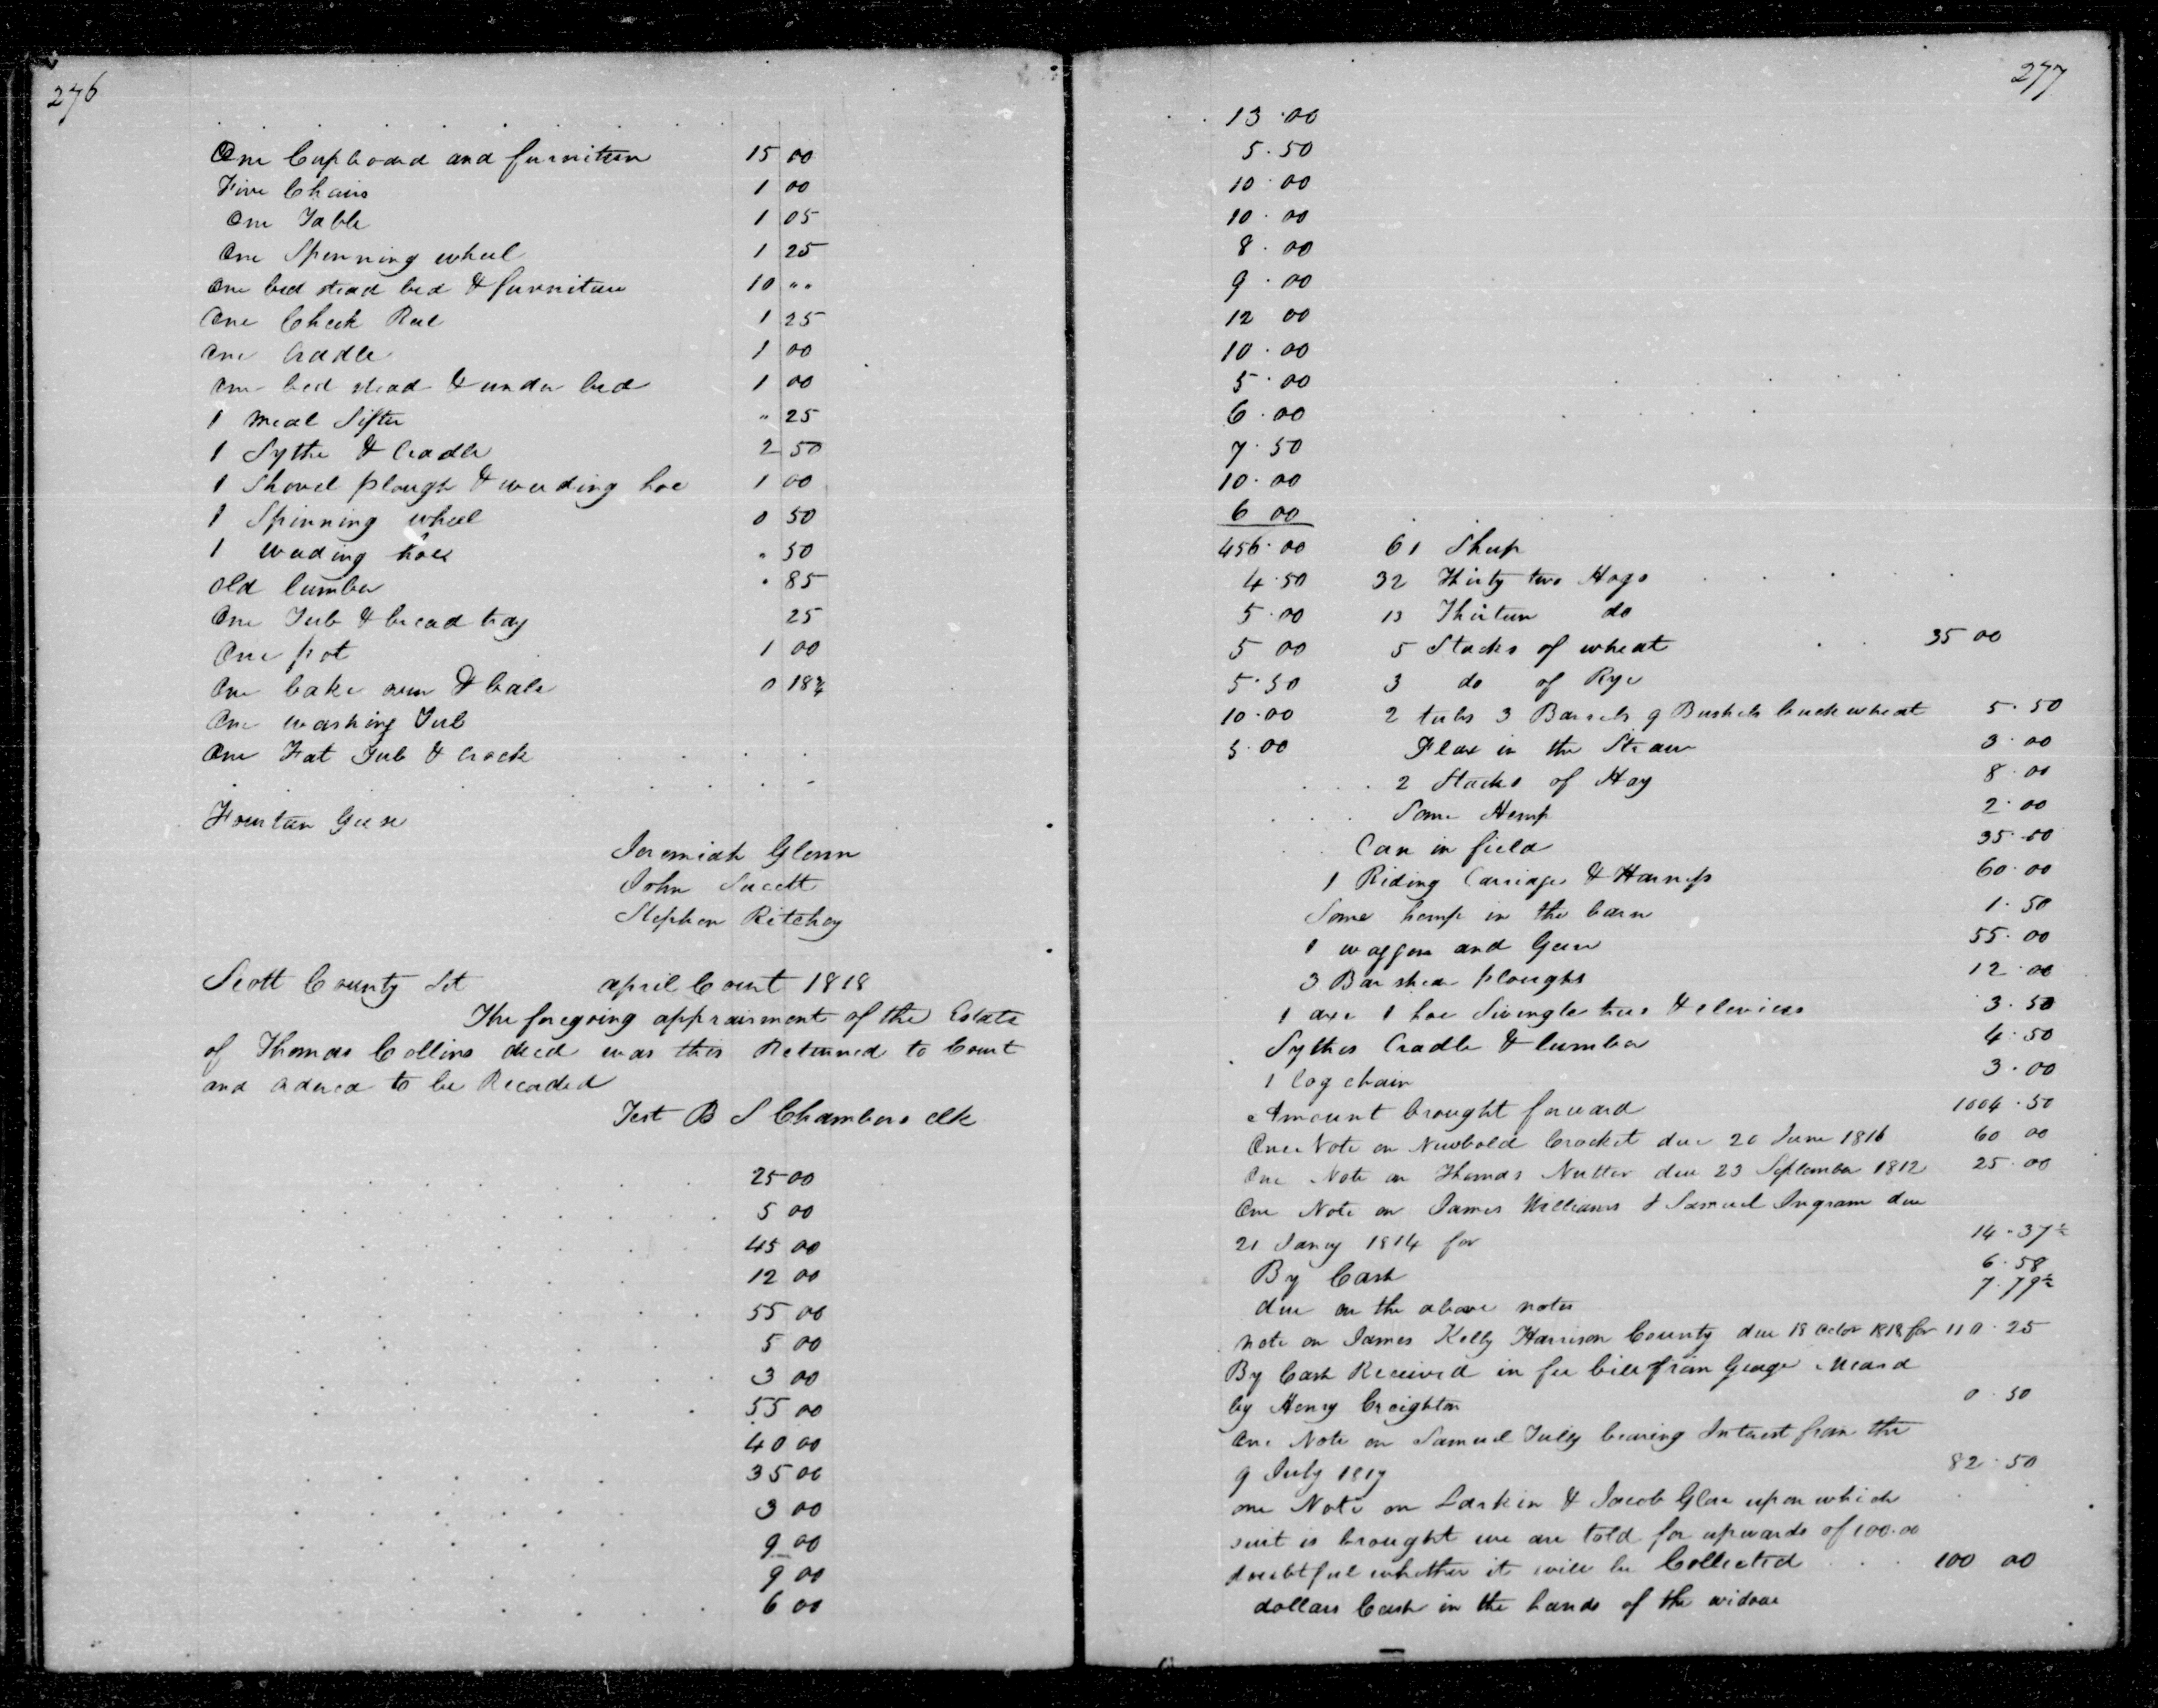 276
One Cupboard and furniture 15 00
Five Chairs 1 00
One Table 1 05
One Spinning wheel 1 25
One bed stead bed & furniture 10 " "
One Check Reel 1 25
One Cradle 1 00
One bed stead & under bed 1 00
1 Meal Sifter " 25
1 Sythe & Cradle 2 50
1 Shovel plough & weeding hoe 1 00
1 Spinning wheel 0 50
1 weeding hoe " 50
Old lumber " 85
One Tub & bread tray 25
One pot 1 00
One bake oven & 0 18¾
One washing Tub
One Fat Tub & Crock
Fourteen Geese
Jeremiah Glenn
John Sucett
Stephen Ritchey
Scott County Sct april Court 1818
The foregoing appraisment of the Estate
of Thomas Collins decd was this Returned to Court
and ordered to be Recorded
Test B S Chambers clk
25 00
5 00
45 00
12 00
55 00
5 00
3 00
55 00
40 00
35 00
3 00
9 00
9 00
6 00
277
13.00
5.50
10.00
10.00
8.00
9.00
12 00
10.00
5.00
6.00
7.50
10.00
6 00
456.00 61 Sheep
4.50 32 Thirty two Hogs
5.00 13 Thirteen do
5 00 5 Stacks of wheat 35 00
5.50 3 do of Rye
10.00 2 tubs 3 Barrels 9 Bushels buckwheat 5.50
5.00 Flax in the Straw 3.00
2 Stacks of Hay 8.00
Some Hemp 2.00
Corn in field 35.00
1 Riding Carriage & Harness 60.00
Some hemp in the barn 1.50
1 waggon and Gear 55.00
3 Bar shear ploughs 12.00
1 axe 1 hoe Swingle trees & clevices 3.50
Sythes Cradle & lumber 4.50
1 log chain 3.00
Amount brought forward 1004.50
One Note on Newbold Crocket due 20 June 1816 60 00
One Note on Thomas Nutter due 23 September 1812 25.00
One Note on James Williams & Samuel Ingram due
21 Jany 1814 for 14.37½
By Cash 6.58
due on the above notes 7.79½
note on James Kelly Harrison County due 18 Octor 1818 for 110.25
By Cash Received in fee bill from George Meard
by Henry Creighton 0.50
One Note on Samuel Tully bearing Interest from the
9 July 1817 82.50
one Note on Larkin & Jacob Glore upon which
suit is brought we are told for upwards of 100.00
doubtful whether it will be Collected 100 00
dollars Cash in the hands of the widow